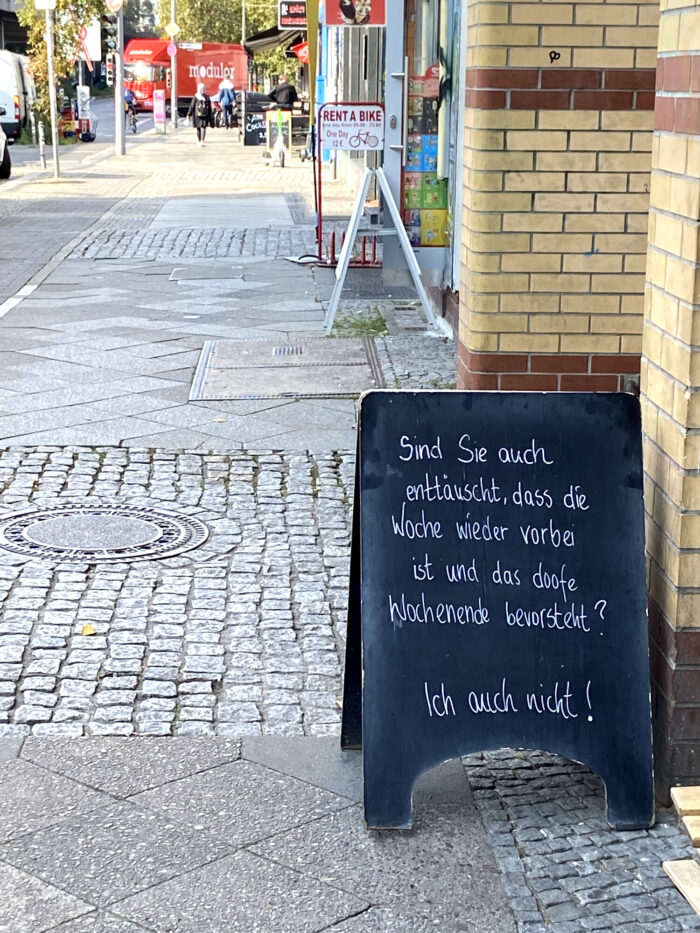 moduler
RENT A BIKE
One Day
12 €
Sind Sie auch
enttäuscht, dass die
Woche wieder vorbei
ist und das doofe
Wochenende bevorsteht?
Ich auch nicht!